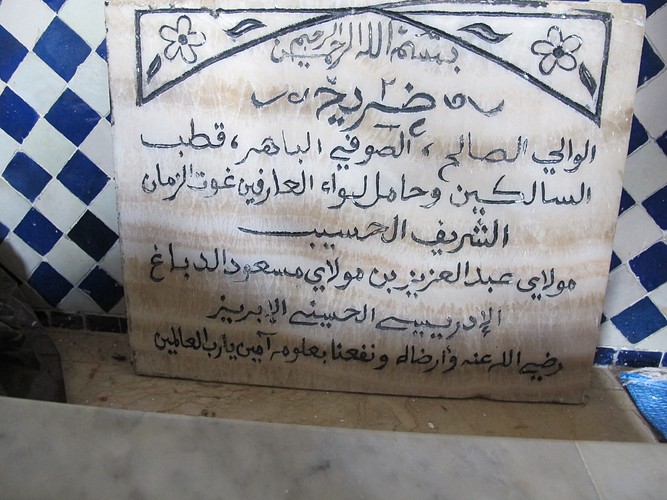 بسم الله الرحمن الرحيم
ضريح
الوالي الصالح، الصوفي الباهر، قطب
السالكين وحامل لواء العارفين غوت الزمان
الشريف الحسيب
مولاي عبد العزيز بن مولاي مسعود الدباغ
الإدريسي الحسني الإبريز
رضي الله عنه وأرضاه ونفعنا بعلومه آمين يارب العالمين